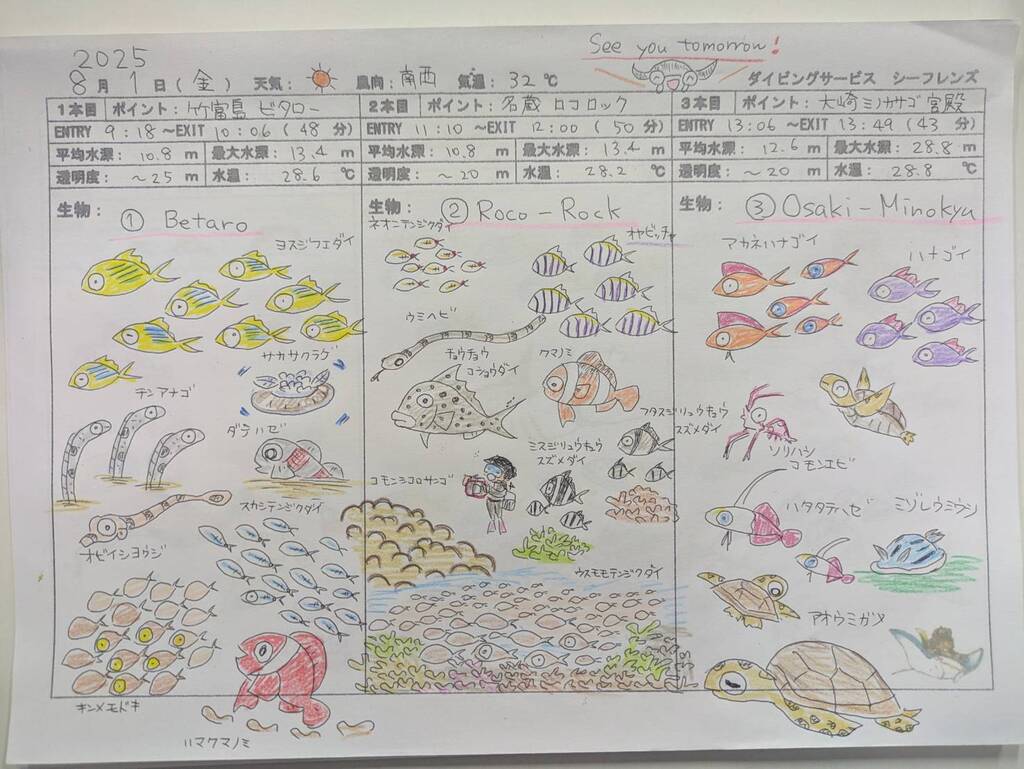 See you tomorrow!
2025
8月1日(金) 天気: 風向: 南西 気温: 32℃ ダイビングサービス シーフレンズ
1本目 ポイント: 竹富島 ビタロー
ENTRY 9:18 ~EXIT 10:06 (48 分)
平均水深: 10.8 m 最大水深: 13.4 m
透明度: ~25 m 水温: 28.6 ℃
生物: ① Betaro
ヨスジフエダイ
サカサクラゲ
チンアナゴ
ダテハゼ
スカシテンジクダイ
オビイシヨウジ
キンメモドキ
ハマクマノミ
2本目 ポイント: 名蔵 ロコロック
ENTRY 11:10 ~EXIT 12:00 (50 分)
平均水深: 10.8 m 最大水深: 13.4 m
透明度: ~20 m 水温: 28.2 ℃
生物: ② Roco-Rock
ネオニテンジクダイ
オヤビッチャ
ウミヘビ
チョウチョウ
コショウダイ
クマノミ
フタスジリュウキュウ
スズメダイ
ミスジリュウキュウ
スズメダイ
コモンシコロサンゴ
ウスモモテンジクダイ
3本目 ポイント: 大崎ミノカサゴ宮殿
ENTRY 13:06 ~EXIT 13:49 (43 分)
平均水深: 12.6 m 最大水深: 28.8 m
透明度: ~20 m 水温: 28.8 ℃
生物: ③ Osaki-Minokyu
アカネハナゴイ
ハナゴイ
ソリハシ
コモンエビ
ハタタテハゼ
ミゾレウミウシ
アオウミガメ